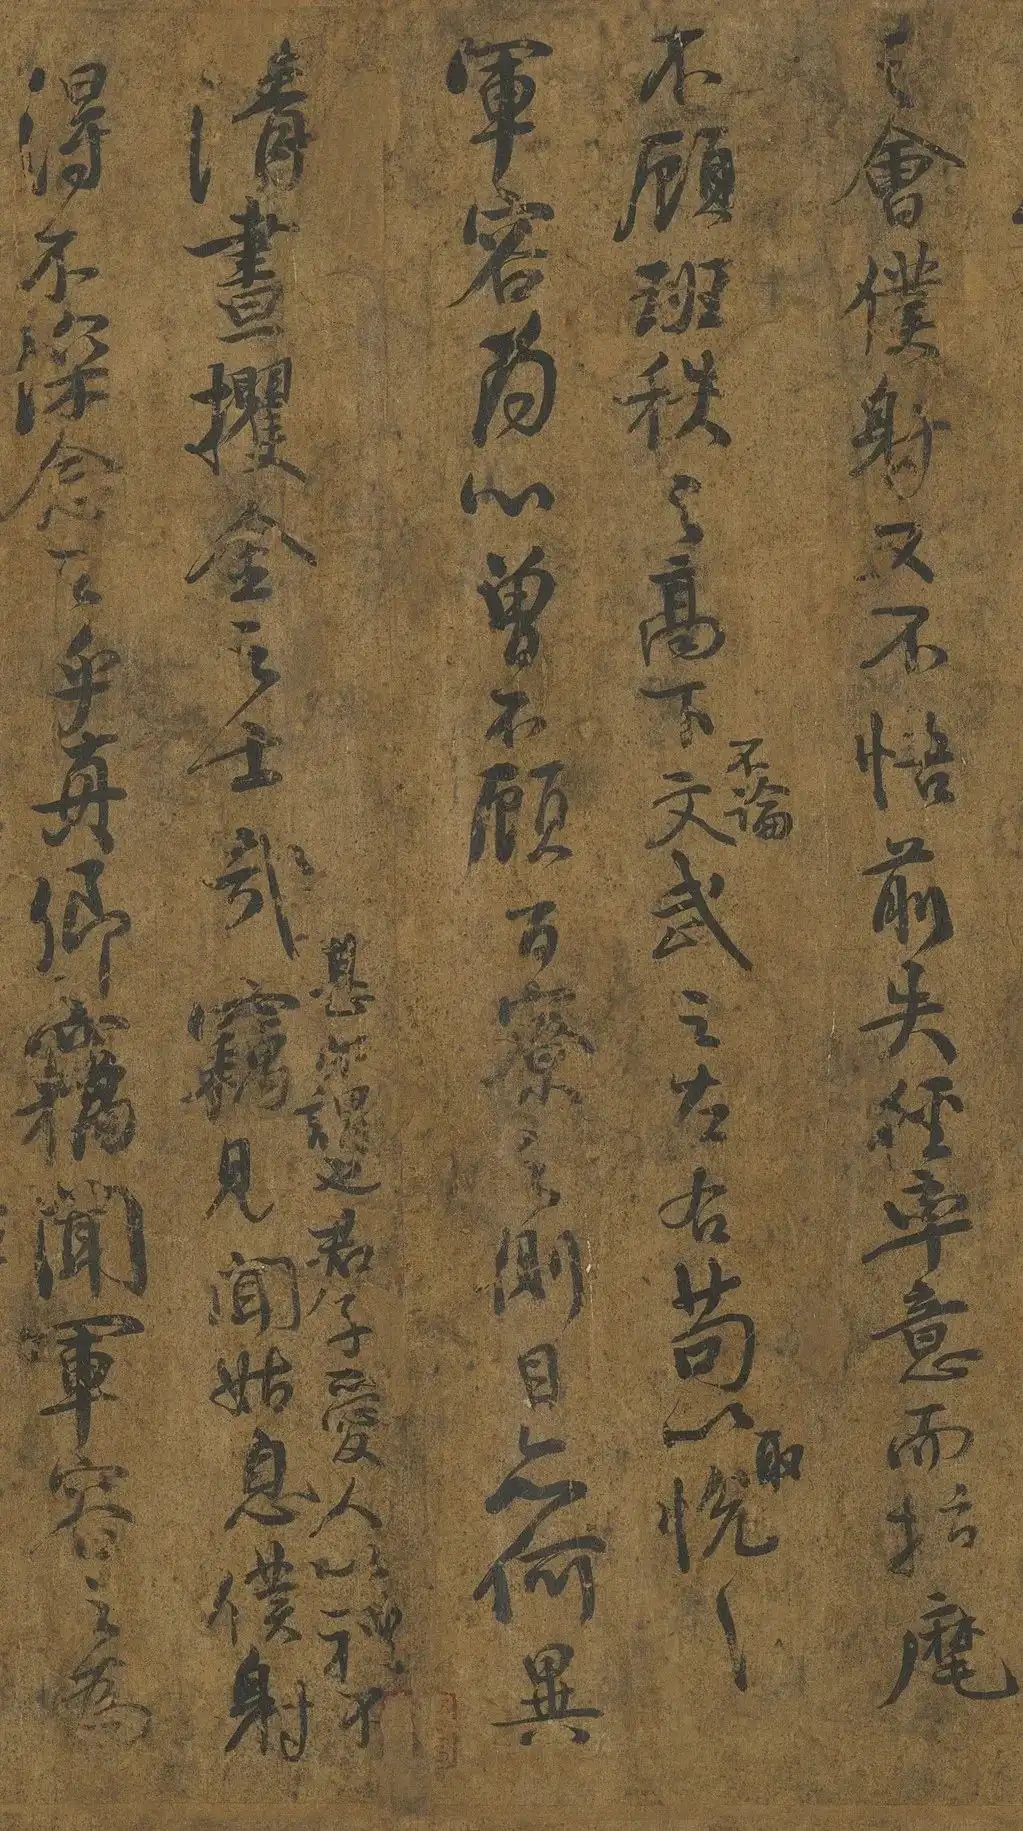 之會僕射又不悟前失徑率意而指麾
不顧班秩之高下不論文武之左右苟以取悅
軍容為心曾不顧百寮之側目亦何異
甚非謂也君子愛人以禮不
清晝攫金之士哉竊見聞姑息僕射
得不深念之乎真卿竊聞軍容之為